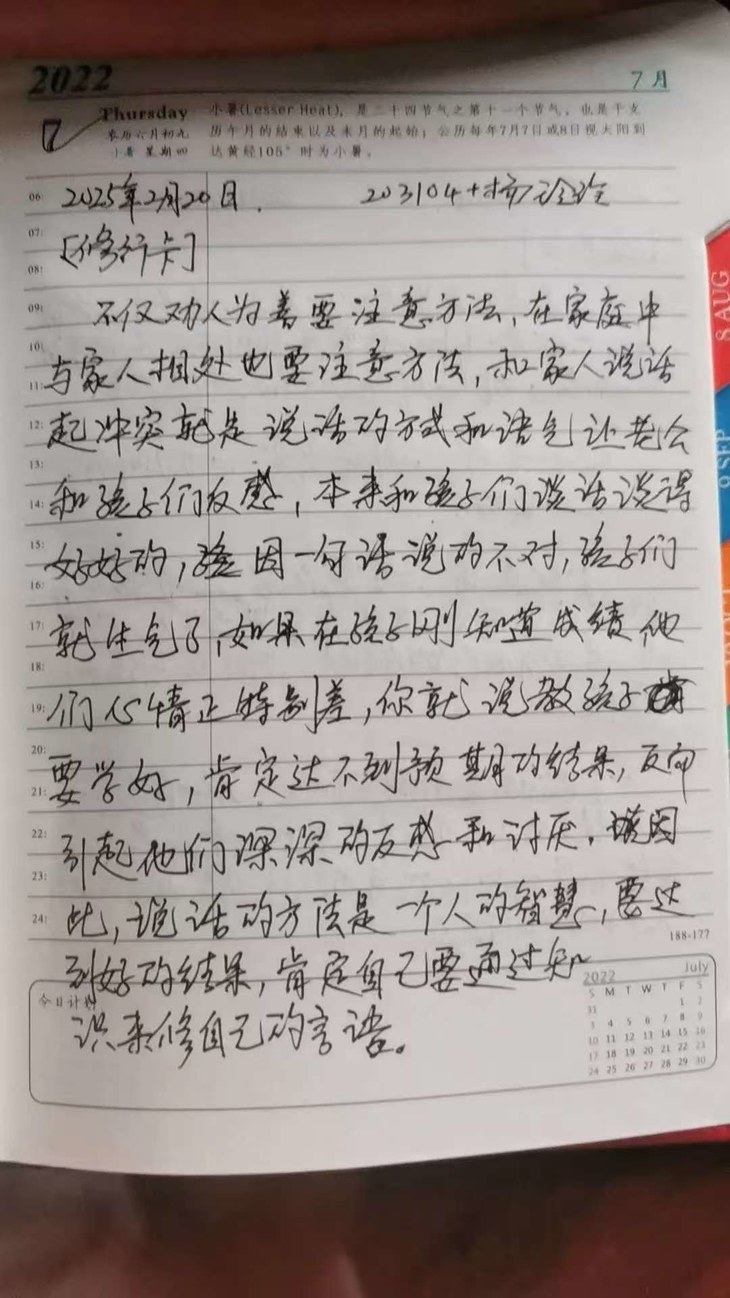 2022
7月
7
Thursday
农历六月初九
小暑 星期四
小暑(Lesser Heat)，是二十四节气之第十一个节气，也是干支
历午月的结束以及未月的起始；公历每年7月7日或8日视太阳到
达黄经105°时为小暑。
06:
2025年2月20日. 203104+杨
07:
[修行卡]
08:
09:
不仅劝人为善要注意方法,在家庭中
10:
与家人相处也要注意方法,和家人说话
11:
12:
起冲突就是说话的方式和语气让老公
13:
和孩子们反感,本来和孩子们说话说得
14:
15:
好好的,因一句话说的不对,孩子们
16:
17:
就生气了,如果在孩子刚知道成绩他
18:
们心情正特别差,你就说教孩子
19:
20:
要学好,肯定达不到预期的结果,反向
21:
22:
引起他们深深的反感和讨厌.因
23:
24:
此,说话的方法是一个人的智慧,要达
188-177
到好的结果,肯定自己要通过知
今日计划
识来修自己的言语。
2022 July
S M T W T F S
31 1 2
3 4 5 6 7 8 9
10 11 12 13 14 15 16
17 18 19 20 21 22 23
24 25 26 27 28 29 30
8 AUG
9 SEP